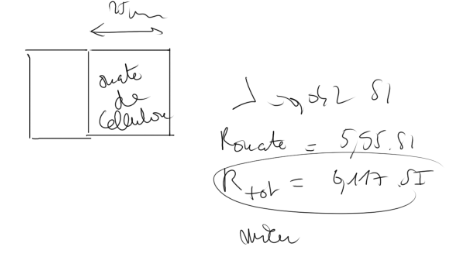 25 cm
ouate
de
Cellulose
λ = 0,042 SI
Rouate = 5,55 SI
Rtot = 6,117 SI